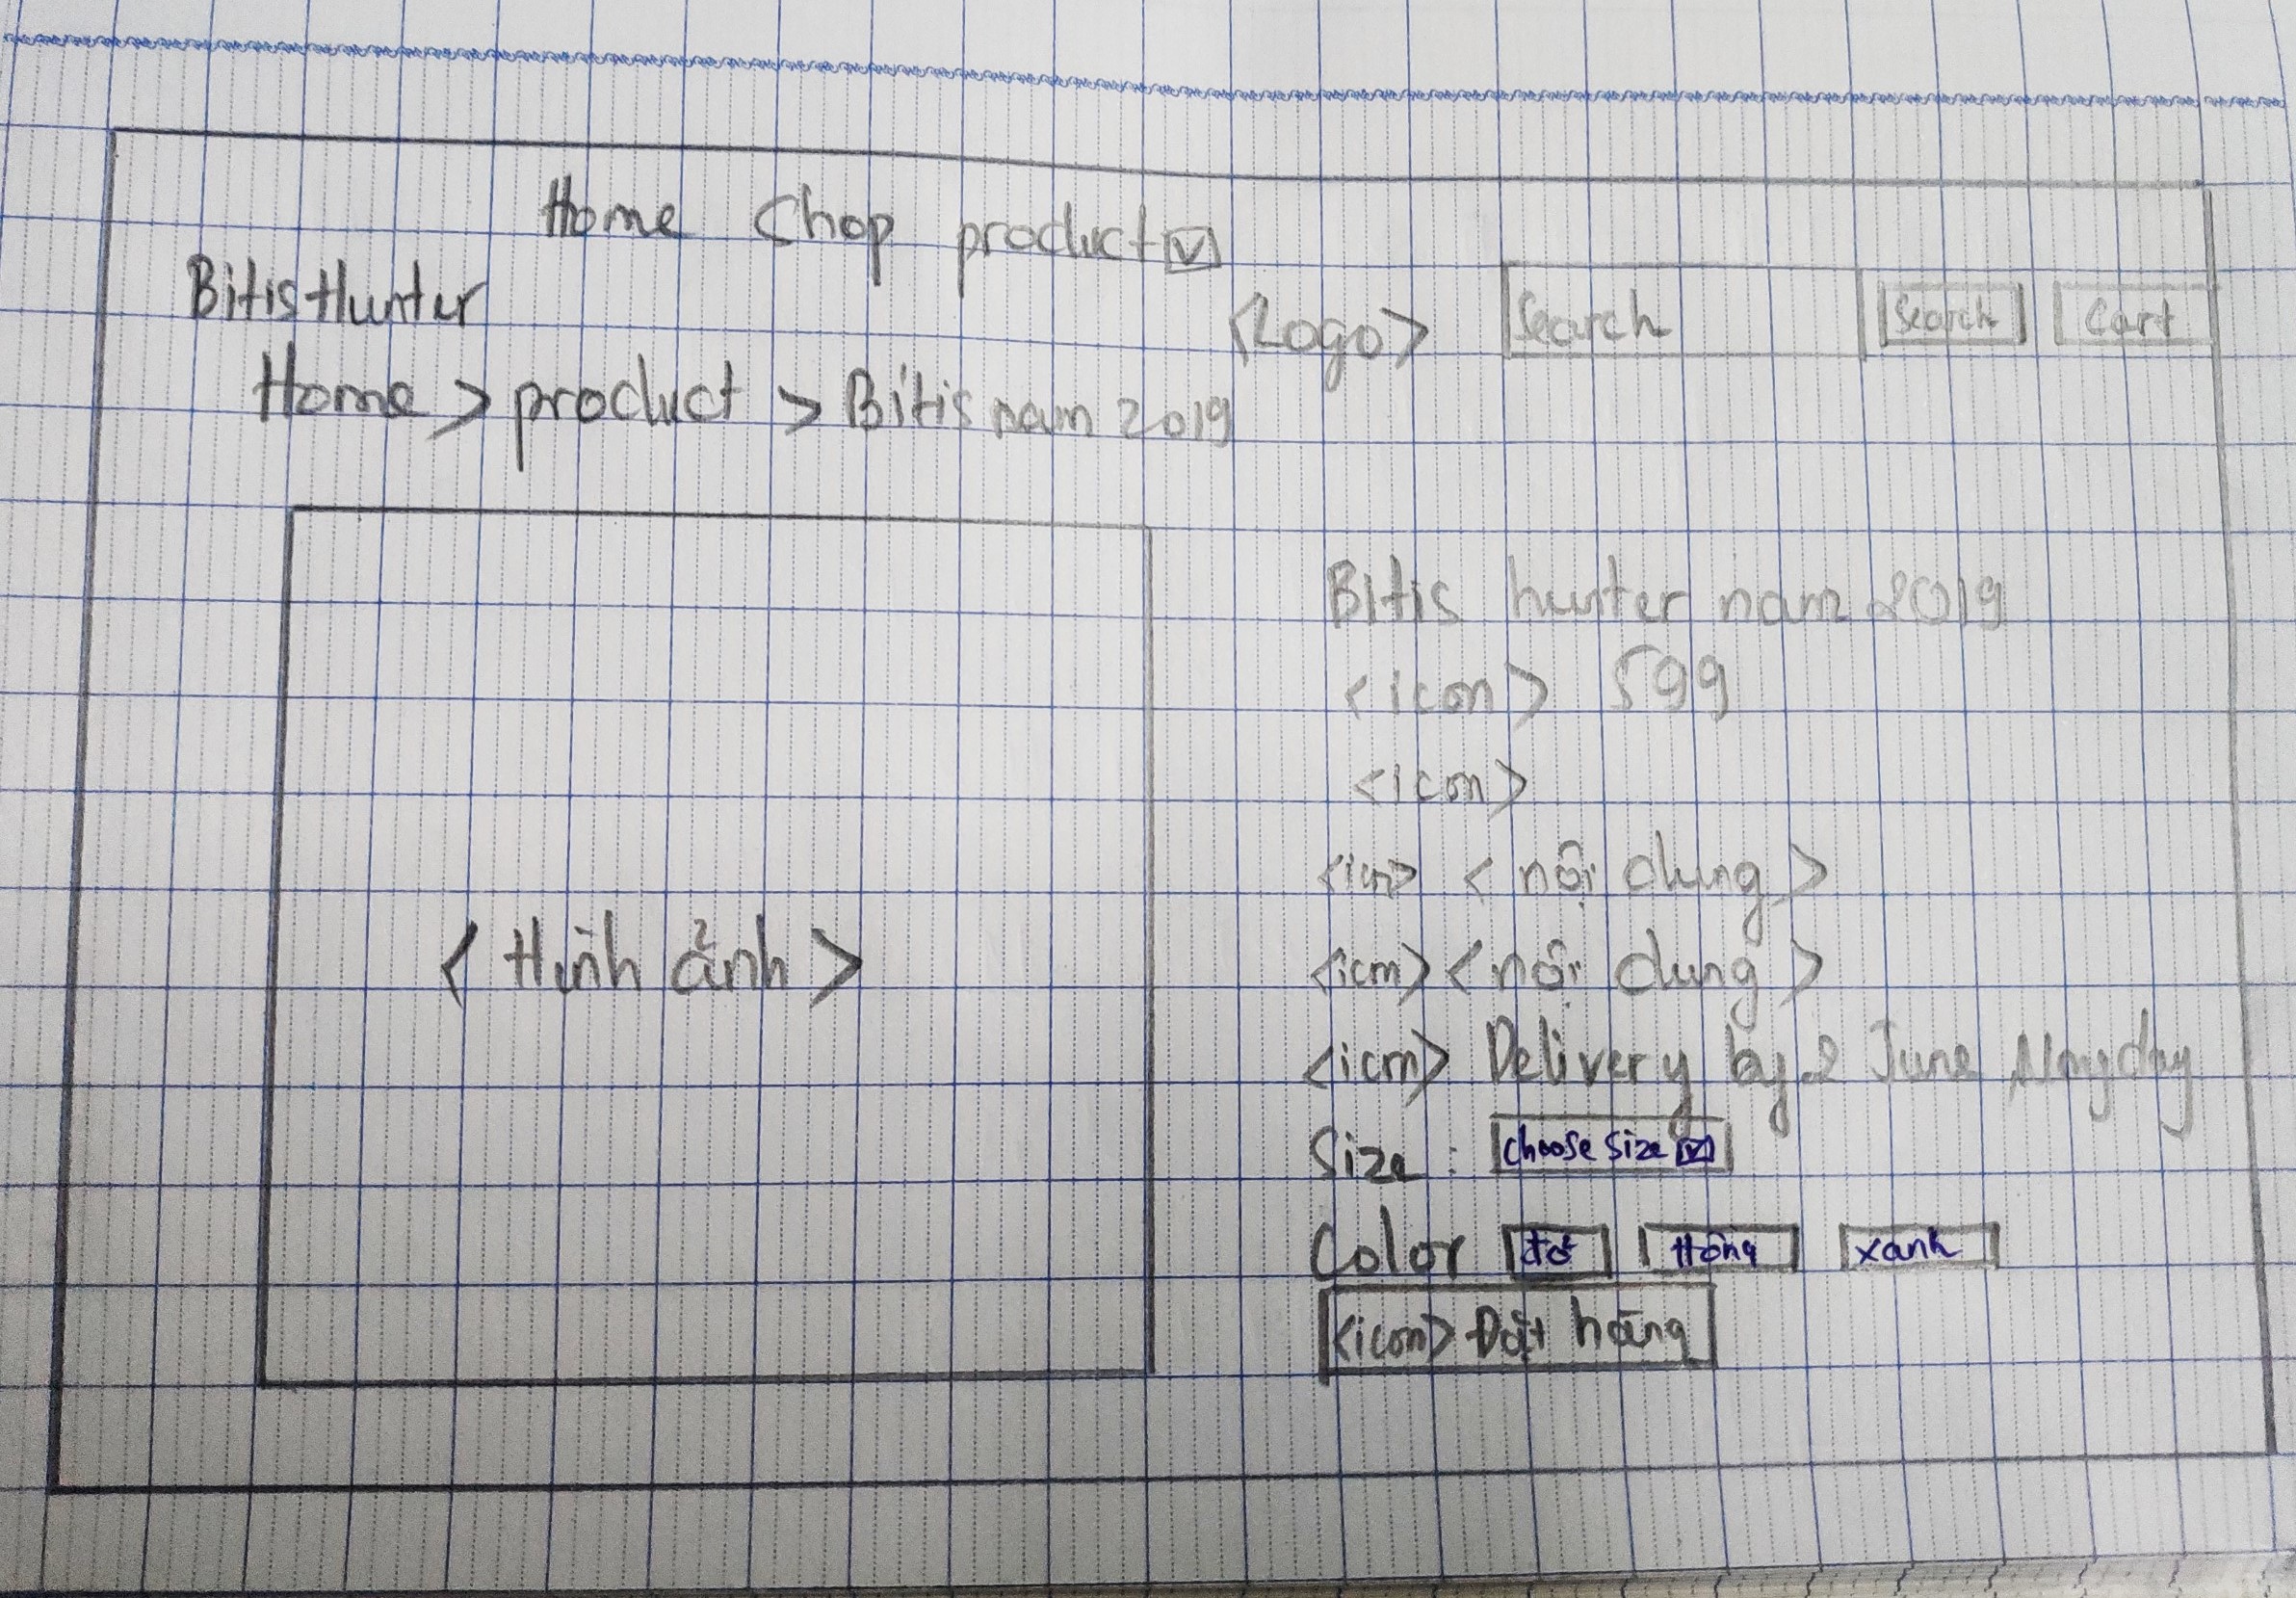 Home Chop product
Bitis Hunter
<Logo> Search Search Cart
Home > product > Bitis nam 2019
Bitis hunter nam 2019
<icon> 599
<icon>
<icon> <nội dung>
<icon> <nội dung>
<Hình ảnh>
<icon> Delivery by 2 June
Size : Choose Size
Color đỏ Hồng xanh
<icon> Đặt hàng